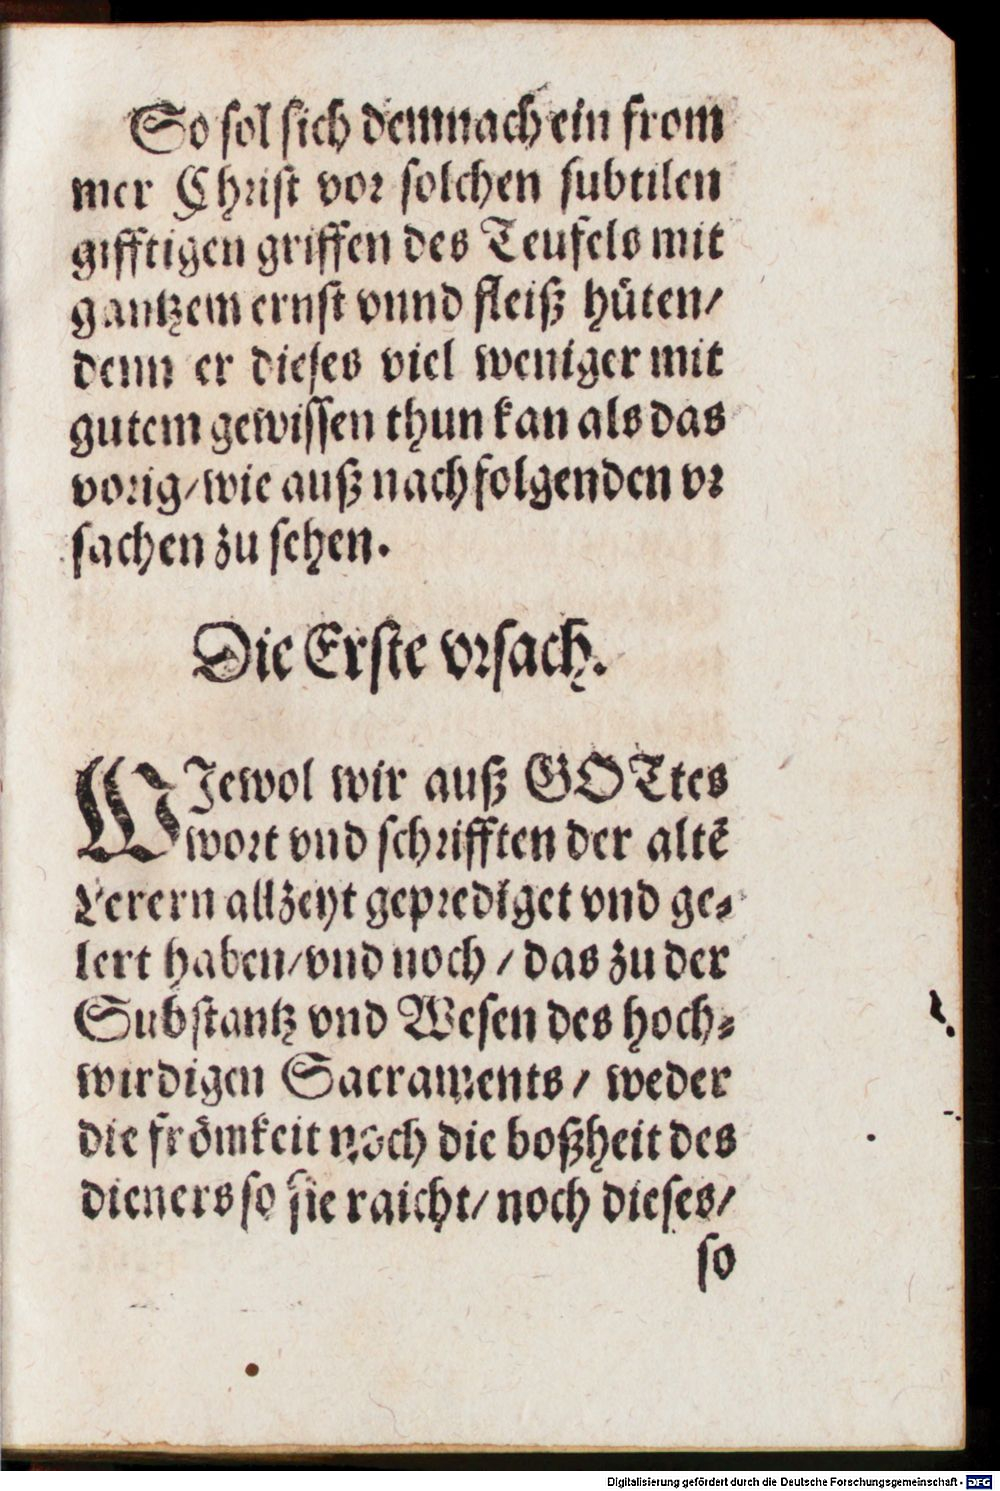 So sol sich demnach ein from
mer Christ vor solchen subtilen
gifftigen griffen des Teufels mit
gantzem ernst vnnd fleiß hüten/
denn er dieses viel weniger mit
gutem gewissen thun kan als das
vorig/wie auß nachfolgenden vr
sachen zu sehen.
Die Erste vrsach.
WJewol wir auß GOTtes
wort vnd schrifften der altẽ
Lerern allzeyt geprediget vnd ge-
lert haben/vnd noch / das zu der
Substantz vnd Wesen des hoch-
wirdigen Sacraments / weder
die frömkeit noch die boßheit des
dieners so sie raicht/ noch dieses/
so
Digitalisierung gefördert durch die Deutsche Forschungsgemeinschaft - DFG